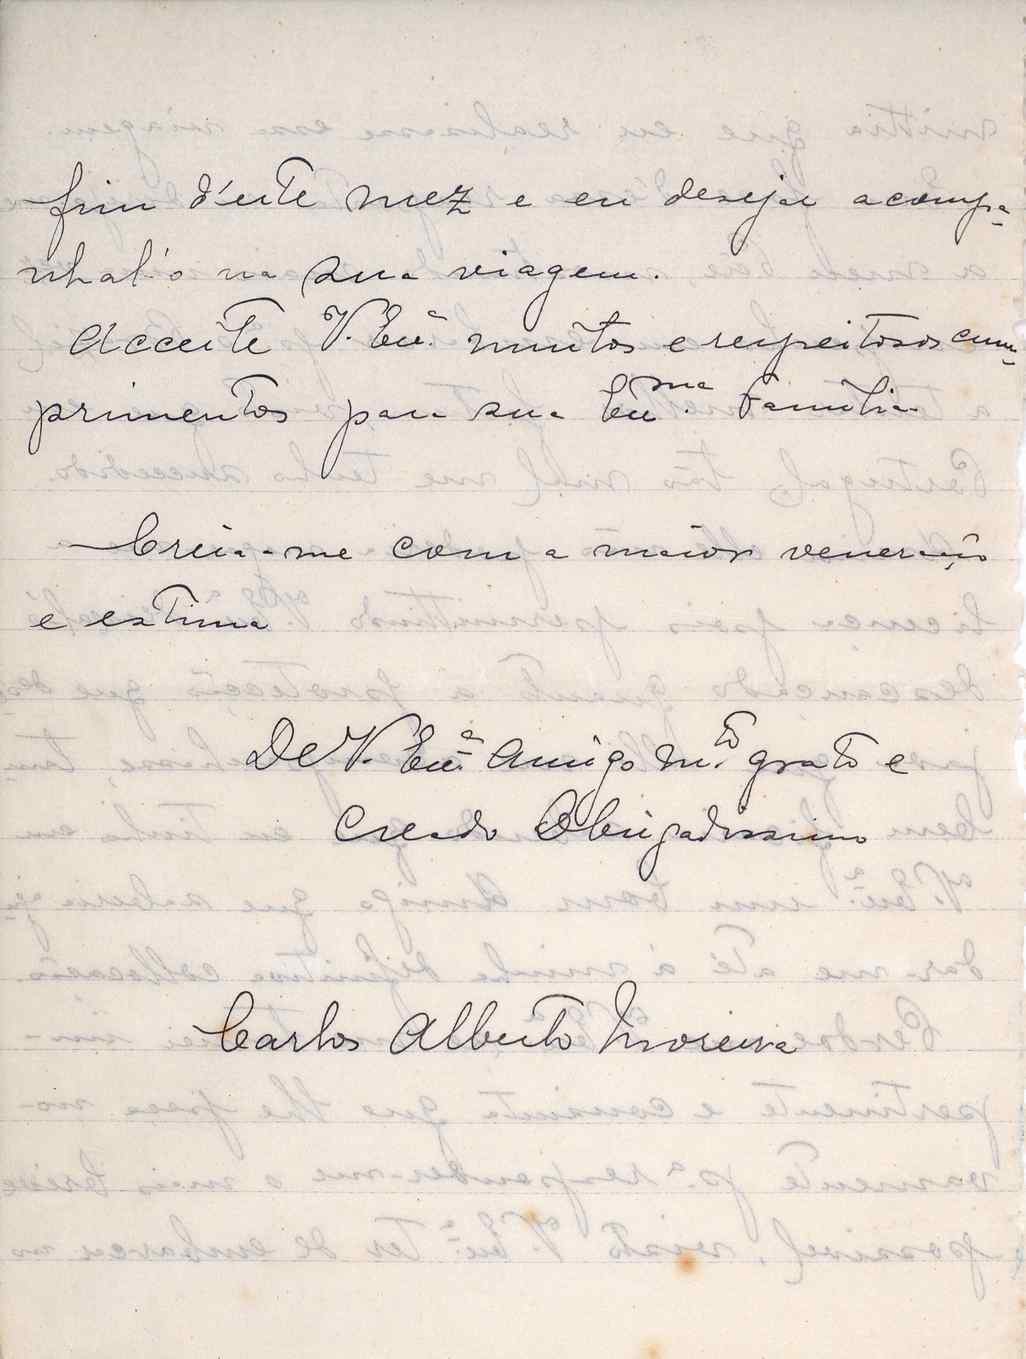 fim d'este mez e eu desejar acompa-
nhal-o na sua viagem.
Acceite V. Exª muitos e respeitosos cum-
primentos para sua Exma. Familia.
Creia-me com a maior veneração
e estima
De V. Exª Amigo m.to grato e
Creado Obrigadissimo
Carlos Alberto Moreira